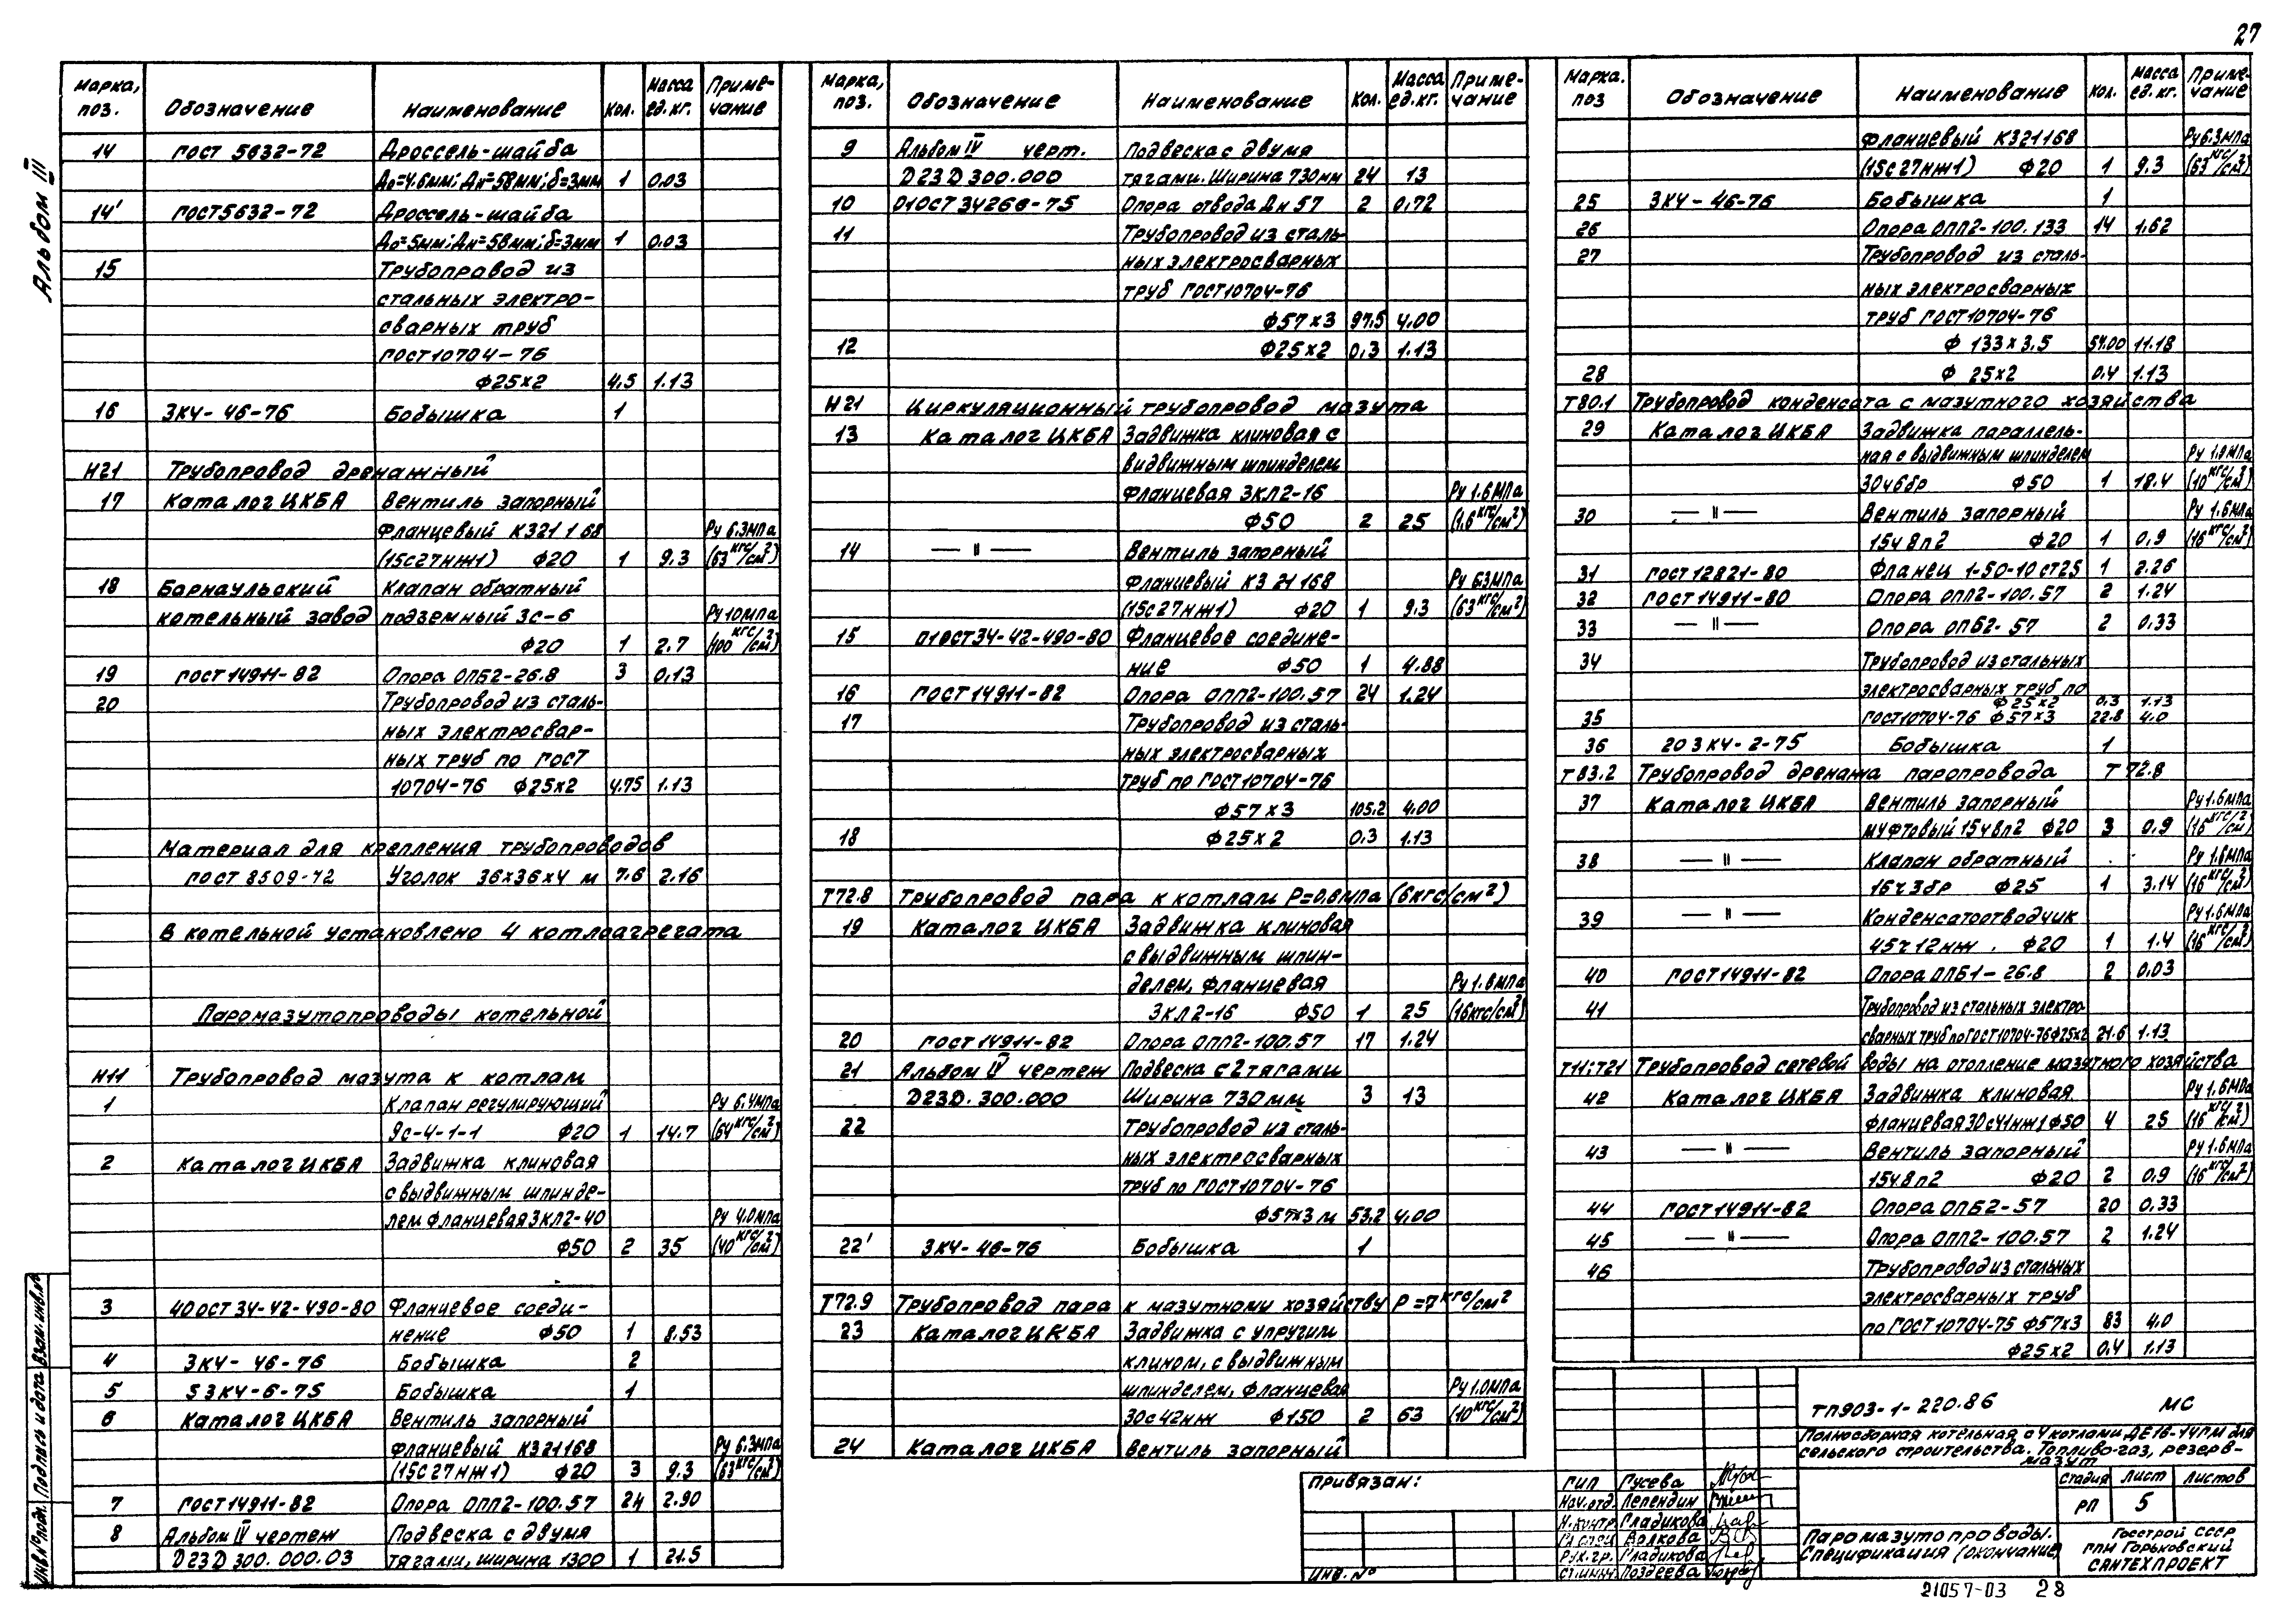 27
Альбом III
Марка, поз. Обозначение Наименование Кол. Масса ед.кг. Приме-чание
14 ГОСТ 5632-72 Дроссель-шайба
До=4.6мм; Дн=58мм; δ=3мм 1 0.03
14' ГОСТ5632-72 Дроссель-шайба
До=5мм; Дн=58мм; δ=3мм 1 0.03
15 Трубопровод из
стальных электро-
сварных труб
ГОСТ10704-76
Ф25х2 4.5 1.13
16 ЗК4-46-76 Бобышка 1
Н21 Трубопровод дренажный
17 Каталог ЦКБА Вентиль запорный
Фланцевый К321 1 68 Ру 6.3мпа
(15с27нж1) Ф20 1 9.3 (63 кгс/см²)
18 Барнаульский Клапан обратный
котельный завод подземный 3с-6 Ру10мпа
Ф20 1 2.7 (100 кгс/см²)
19 ГОСТ14911-82 Опора ОПБ2-26.8 3 0.13
20 Трубопровод из сталь-
ных электросвар-
ных труб по ГОСТ
10704-76 Ф25х2 4.75 1.13
Материал для крепления трубопроводов
ГОСТ 8509-72 Уголок 36х36х4 м 7.6 2.16
В котельной установлено 4 котлоагрегата
Паромазутопроводы котельной
Н11 Трубопровод мазута к котлам
1 Клапан регулирующий Ру 6.4мпа
9с-4-1-1 Ф20 1 14.7 (64 кгс/см²)
2 Каталог ЦКБА Задвижка клиновая
с выдвижным шпинде-
лем фланцевая ЗКЛ2-40 Ру 4.0мпа
Ф50 2 35 (40 кгс/см²)
3 40 ОСТ 34-42-490-80 Фланцевое соеди-
нение Ф50 1 8.53
4 ЗК4-46-76 Бобышка 2
5 5 ЗК4-6-75 Бобышка 1
6 Каталог ЦКБА Вентиль запорный
фланцевый К321168 Ру 6.3мпа
(15с27нж1) Ф20 3 9.3 (63 кгс/см²)
7 ГОСТ14911-82 Опора ОПП2-100.57 24 2.90
8 Альбом IV чертеж Подвеска с двумя
D23D 300.000.03 тягами, ширина 1300 1 21.5
Марка, поз. Обозначение Наименование Кол. Масса ед.кг. Приме-чание
9 Альбом IV черт. Подвеска с двумя
D23D 300.000 тягами. Ширина 730мм 24 13
10 01ОСТ 34266-75 Опора отвода Дн 57 2 0.72
11 Трубопровод из сталь-
ных электросварных
труб ГОСТ10704-76
Ф57х3 97.5 4.00
12 Ф25х2 0.3 1.13
Н21 Циркуляционный трубопровод мазута
13 Каталог ЦКБА Задвижка клиновая с
видвижным шпинделем
фланцевая ЗКЛ2-16 Ру 1.6мпа
Ф50 2 25 (1.6 кгс/см²)
14 — " — Вентиль запорный
Фланцевый К3 21 168 Ру 6.3мпа
(15с27нж1) Ф20 1 9.3 (63 кгс/см²)
15 01ОСТ34-42-490-80 Фланцевое соедине-
ние Ф50 1 4.88
16 ГОСТ14911-82 Опора ОПП2-100.57 24 1.24
17 Трубопровод из сталь-
ных электросварных
труб по ГОСТ10704-76
Ф57х3 105.2 4.00
18 Ф25х2 0.3 1.13
Т72.8 Трубопровод пара к котлам Р=0.6мпа (6кгс/см²)
19 Каталог ЦКБА Задвижка клиновая
с выдвижным шпин-
делем, фланцевая Ру 1.6мпа
ЗКЛ2-16 Ф50 1 25 (16кгс/см²)
20 ГОСТ14911-82 Опора ОПП2-100.57 17 1.24
21 Альбом IV чертеж Подвеска с 2 тягами
D23D.300.000 Ширина 730мм 3 13
22 Трубопровод из сталь-
ных электросварных
труб по ГОСТ10704-76
Ф57х3 м 53.2 4.00
22' ЗК4-46-76 Бобышка 1
Т72.9 Трубопровод пара к мазутному хозяйству Р=7 кгс/см²
23 Каталог ЦКБА Задвижка с упругим
клином, с выдвижным
шпинделем, фланцевая Ру 1.0мпа
30с42нж Ф150 2 63 (10 кгс/см²)
24 Каталог ЦКБА Вентиль запорный
Марка. поз Обозначение Наименование Кол. Масса ед.кг. Приме-чание
Фланцевый К321168 Ру6.3мпа
(15с27нж1) Ф20 1 9.3 (63 кгс/см²)
25 ЗК4-46-76 Бобышка 1
26 Опора ОПП2-100.133 14 1.62
27 Трубопровод из сталь-
ных электросварных
труб ГОСТ10704-76
Ф 133х3.5 54.00 11.18
28 Ф 25х2 0.4 1.13
Т80.1 Трубопровод конденсата с мазутного хозяйства
29 Каталог ЦКБА Задвижка параллель-
ная с выдвижным шпинделем Ру 1.0мпа
30ч6бр Ф50 1 18.4 (10 кгс/см²)
30 — " — Вентиль запорный Ру 1.6мпа
15ч8п2 Ф20 1 0.9 (16 кгс/см²)
31 ГОСТ12821-80 Фланец 1-50-10 ст25 1 2.26
32 ГОСТ14911-80 Опора ОПП2-100.57 2 1.24
33 — " — Опора ОПБ2-57 2 0.33
34 Трубопровод из стальных
электросварных труб по
Ф25х2 0.3 1.13
35 ГОСТ10704-76 Ф57х3 22.8 4.0
36 20 ЗК4-2-75 Бобышка 1
Т83.2 Трубопровод дренажа паропровода Т72.8
37 Каталог ЦКБА Вентиль запорный Ру1.6мпа
муфтовый 15ч8п2 Ф20 3 0.9 (16 кгс/см²)
38 — " — Клапан обратный Ру 1.6мпа
16ч3бр Ф25 1 3.14 (16 кгс/см²)
39 — " — Конденсатоотводчик Ру1.6мпа
45ч12нж. Ф20 1 1.4 (16 кгс/см²)
40 ГОСТ14911-82 Опора ОПБ1-26.8 2 0.03
41 Трубопровод из стальных электро-
сварных труб по ГОСТ10704-76 Ф25х2 21.6 1.13
Т11;Т21 Трубопровод сетевой воды на отопление мазутного хозяйства
42 Каталог ЦКБА Задвижка клиновая Ру1.6мпа
фланцевая 30с41нж1 Ф50 4 25 (16 кгс/см²)
43 — " — Вентиль запорный Ру1.6мпа
15ч8п2 Ф20 2 0.9 (16 кгс/см²)
44 ГОСТ14911-82 Опора ОПБ2-57 20 0.33
45 — " — Опора ОПП2-100.57 2 1.24
46 Трубопровод из стальных
электросварных труб
по ГОСТ10704-75 Ф57х3 83 4.0
Ф25х2 0.4 1.13
ТП903-1-220.86 МС
Полносборная котельная с 4 котлами ДЕ16-14ГМ для
сельского строительства. Топливо-газ, резерв-
мазут
Стадия Лист Листов
РП 5
Паромазутопроводы.
Спецификация (окончание)
Госстрой СССР
ГПИ Горьковский
САНТЕХПРОЕКТ
Привязан:
Инв.№
ГИП Гусева
Нач.отд. Лепендин
Н.контр. Гладикова
Гл.спец. Волкова
Рук.гр. Гладикова
Ст.инж. Поздеева
Инв.№ подл. Подпись и дата Взам.инв.№
21057-03 28